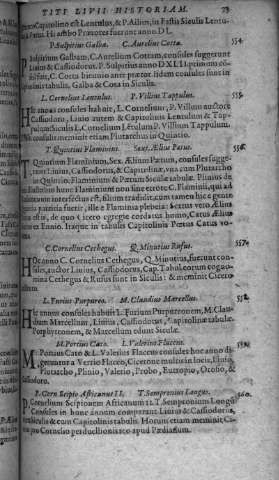 TITI LIVII HISTORIAM. 73
Capitolino est Lentulus, & P. Ælius, in Fastis Siculis Lentu-
Pætus. Hi ambo Prætores fuerant anno DL.
P. Sulpitius Galba. C. Aurelius Cotta. 554.
P. Sulpitium Galbam, C. Aurelium Cottam, consules suggerunt
Liuius & Cassiodorus. P. Sulpitius anno DXLIII. primùm con-
sul fuit, C. Cotta biennio ante prætor. Iidem consules sunt in
pinis tabulis. Galba & Cosa in Siculis.
L. Cornelius Lentulus. P. Villius Tappulus.
Hic annus consules habuit, L. Cornelium, P. Villium auctore
Cassiodoro, Liuio autem & Capitolinis Lentulum & Tap-
pulum. Siculis L. Cornelium Lẽtulum P. Villium Tappulum.
consulis meminit etiam Plutarchus in Quintio.
T. Quintius Flamininus. Sext. Ælius Pætus. 556.
T. Quintium Flamininum, Sex. Ælium Pætum, consules sugge-
runt Liuius, Cassiodorus, & Capitolinæ, vna cum Plutarcho
in Quintio. Flaminium & Pætum Siculæ tabulæ. Plinius de
hunc Flaminium non sine errore C. Flaminii, qui ad
interfectus est, filium tradidit: cum tamen hic è gente
patritia fuerit, ille è Flaminia plebeia. Sextus verò Ælius
est, de quo Cicero egregiè cordatus homo, Catus Ælius
ex Ennio. Itaque in tabulis Capitolinis Pætus Catus vo-
C. Cornelius Cethegus. Q. Minutius Rufus. 557.
Hoc anno C. Cornelius Cethegus, Q. Minutius, fuerunt con-
sules, auctor Liuius, Cassiodorus, Cap. Tabulæ eorum cogno-
mina Cethegus & Rufus sunt in Siculis: & meminit Cicero
L. Furius Purpureo. M. Claudius Marcellus. 558.
Hic annus consules habuit L. Furium Purpureonem, M. Clau-
dium Marcellum, Liuius, Cassiodorus, Capitolinæ tabulæ.
Porphyronem, & Marcellum edunt Siculæ.
M. Portius Cato. L. Valerius Flaccus.
M. Portius Cato & L. Valerius Flaccus consules hoc anno di-
à Verrio Flacco, Cicerone multis in locis, Liuio,
Plutarcho, Plinio, Valerio, Probo, Eutropio, Orosio, &
Cassiodoro.
P. Corn. Scipio Africanus II. T. Sempronius Longus. 560.
P. Cornelium Scipionem Africanum II. T. Sempronium Longũ
Consules in hunc annum comparat Liuius & Cassiodorus,
& cum Capitolinis tabulis. Horum etiam meminit Ci-
pro Cornelio perduellionis reo apud Pædianum.